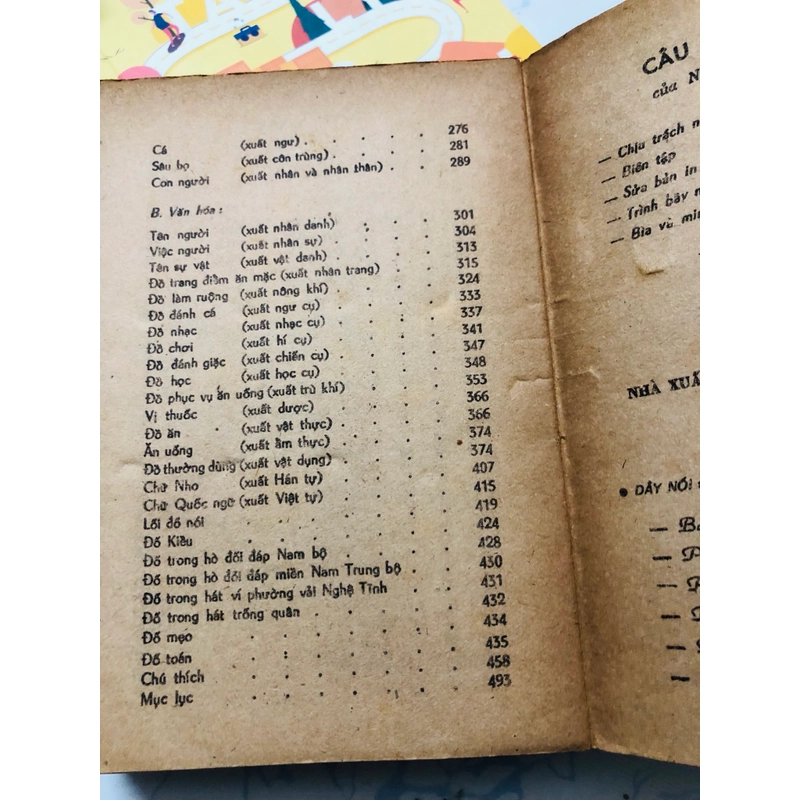 Cá (xuất ngư) . . . . . 276
Sâu bọ (xuất côn trùng) . . . . 281
Con người (xuất nhân và nhân thân) . . 289
B. Văn hóa :
Tên người (xuất nhân danh) . . . . 301
Việc người (xuất nhân sự) . . . . 304
Tên sự vật (xuất vật danh) . . . . 313
Đồ trang điểm ăn mặc (xuất nhân trang) . . 315
Đồ làm ruộng (xuất nông khí) . . . . 324
Đồ đánh cá (xuất ngư cụ) . . . . 333
Đồ nhạc (xuất nhạc cụ) . . . . 337
Đồ chơi (xuất hí cụ) . . . . 341
Đồ đánh giặc (xuất chiến cụ) . . . . 347
Đồ học (xuất học cụ) . . . . 348
Đồ phục vụ ăn uống (xuất trù khí) . . . 353
Vị thuốc (xuất dược) . . . . 366
Đồ ăn (xuất vật thực) . . . . 366
Ăn uống (xuất ẩm thực) . . . . 374
Đồ thường dùng (xuất vật dụng) . . . . 374
Chữ Nho (xuất Hán tự) . . . . 407
Chữ Quốc ngữ (xuất Việt tự) . . . . 415
Lối đố nói . . . . . . 419
Đố Kiều . . . . . . 424
Đố trong hò đối đáp Nam bộ . . . . 428
Đố trong hò đối đáp miền Nam Trung bộ . . 430
Đố trong hát ví phường vải Nghệ Tĩnh . . 431
Đố trong hát trống quân . . . . 432
Đố mẹo . . . . . . 434
Đố toán . . . . . . 435
Chú thích . . . . . . 458
Mục lục . . . . . . 493
CÂU
của N
— Chịu trách n
— Biên tập
— Sửa bản in
— Trình bày
— Bìa và mi
NHÀ XUẤ
• DÂY NÓI